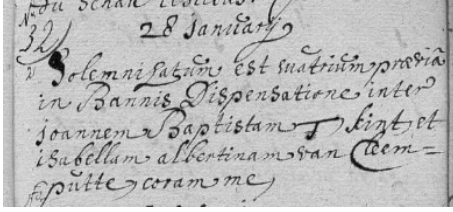 28 Januarij
32
Solemnisatum est matrimonium prævia
in Bannis Dispensatione inter
joannem Baptistam T'kint, et
isabellam albertinam van Cleem=
putte, coram me,